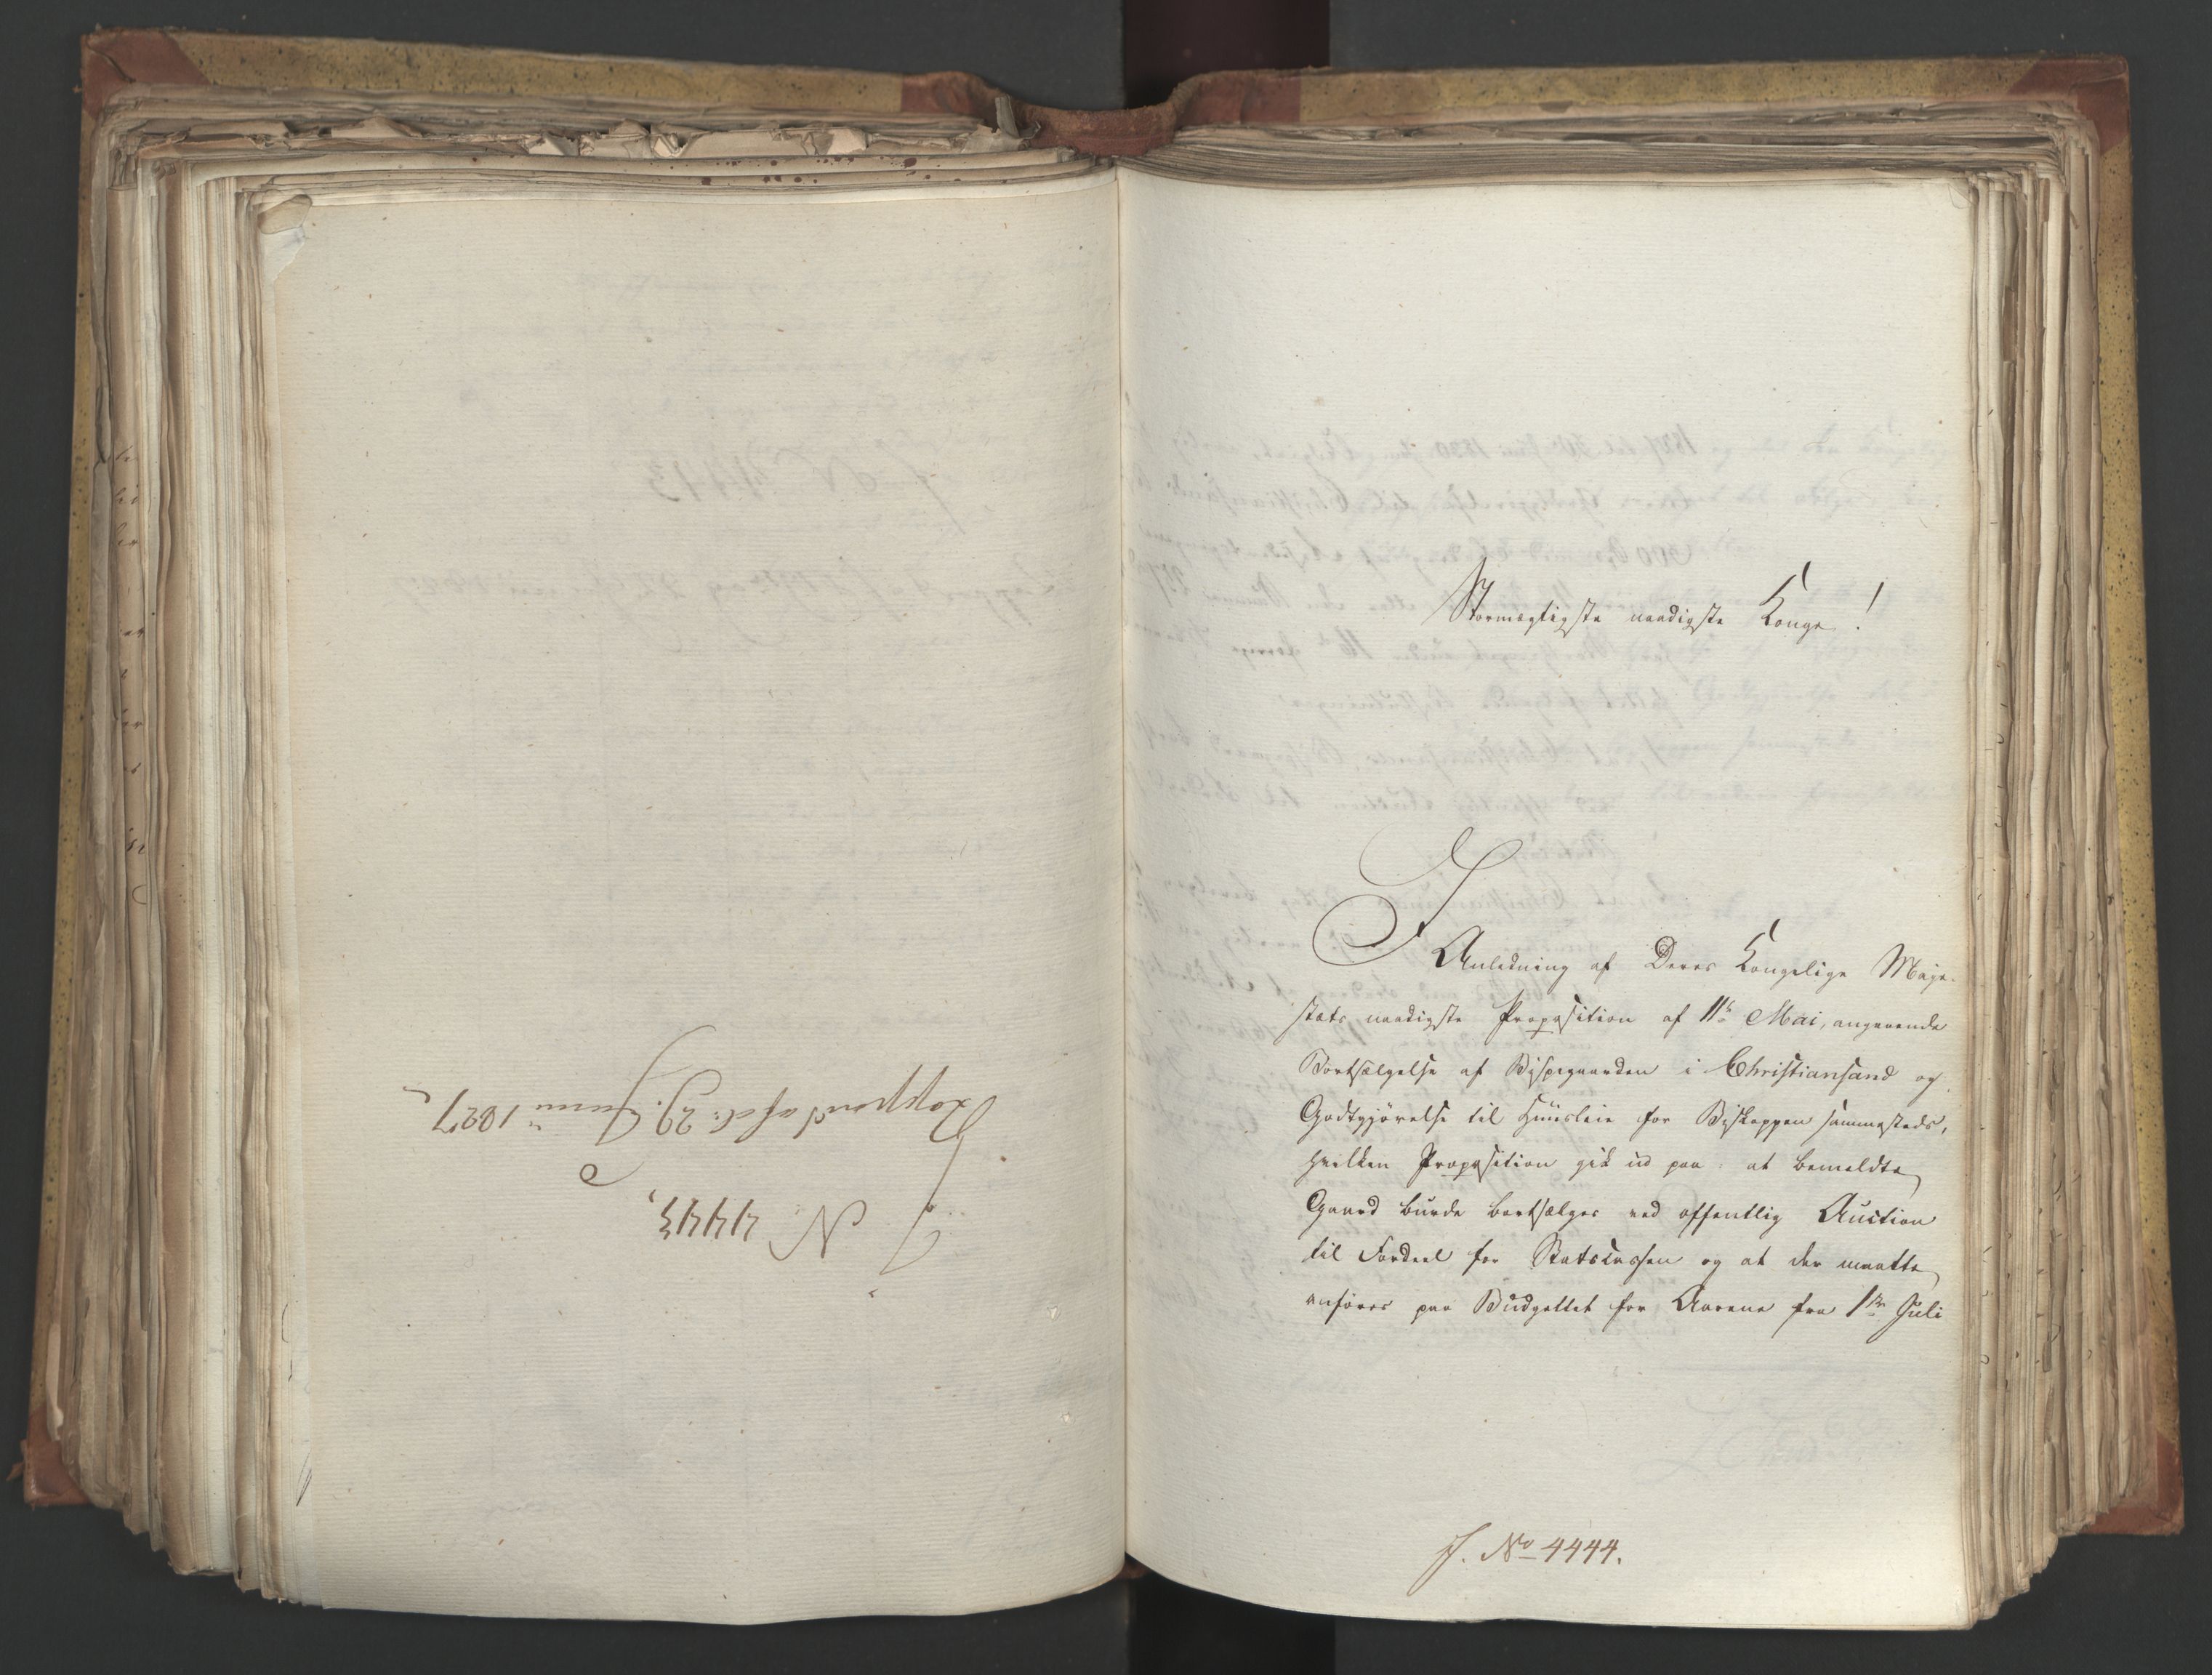 J. No 4443.
Rapport af d: 29. Junii 1827
Stormægtigste naadigste Konge!
I Anledning af Deres Kongelige Maje-
stæts naadigste Proposition af 11te Mai, angaaende
Bortsælgelse af Bispegaarden i Christiansand og
Godtgjörelse til Huusleie for Biskoppen sammesteds,
hvilken Proposition gik ud paa: at bemeldte
Gaard burde bortsælges ved offentlig Auction
til Fordeel for Statscassen og at der maatte
anföres paa Budgettet for Aarene fra 1ste Juli
J. No 4444.